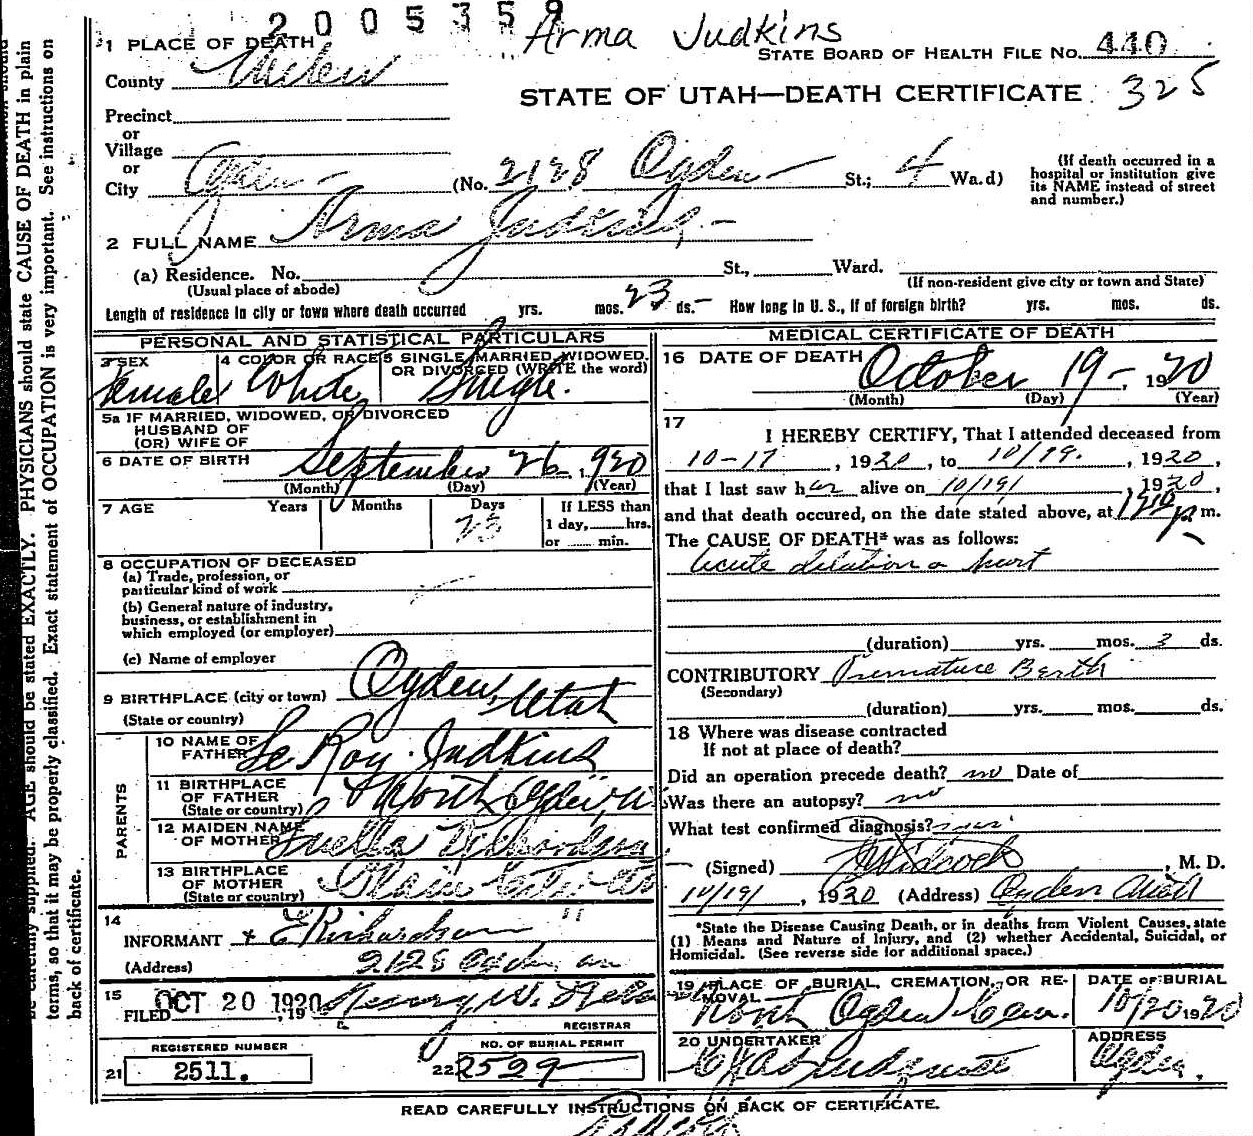 2005359
Arma Judkins
STATE BOARD OF HEALTH FILE NO. 440
STATE OF UTAH—DEATH CERTIFICATE 325
1 PLACE OF DEATH
County Weber
Precinct
or
Village
or
City Ogden (No. 2128 Ogden St.; 4 Wa.d)
(If death occurred in a hospital or institution give its NAME instead of street and number.)
2 FULL NAME Arma Judkins
(a) Residence. No. St., Ward.
(Usual place of abode) (If non-resident give city or town and State)
Length of residence in city or town where death occurred yrs. mos. 23 ds. How long in U. S., if of foreign birth? yrs. mos. ds.
PERSONAL AND STATISTICAL PARTICULARS
3 SEX Female
4 COLOR OR RACE White
5 SINGLE, MARRIED, WIDOWED, OR DIVORCED (WRITE the word) Single.
5a IF MARRIED, WIDOWED, OR DIVORCED
HUSBAND OF
(OR) WIFE OF
6 DATE OF BIRTH September 26, 1920
(Month) (Day) (Year)
7 AGE Years Months Days If LESS than
23 1 day, hrs.
or min.
8 OCCUPATION OF DECEASED
(a) Trade, profession, or
particular kind of work
(b) General nature of industry,
business, or establishment in
which employed (or employer)
(c) Name of employer
9 BIRTHPLACE (city or town) Ogden, Utah
(State or country)
PARENTS
10 NAME OF FATHER Le Roy Judkins
11 BIRTHPLACE OF FATHER North Ogden, U
(State or country)
12 MAIDEN NAME OF MOTHER Luella Richardson
13 BIRTHPLACE OF MOTHER Plain City
(State or country)
14
INFORMANT E Richardson
(Address) 2128 Ogden av
15
FILED OCT 20 1920, 19 Henry W.
REGISTRAR
REGISTERED NUMBER
21 2511.
NO. OF BURIAL PERMIT
22 2529
MEDICAL CERTIFICATE OF DEATH
16 DATE OF DEATH October 19, 1920
(Month) (Day) (Year)
17
I HEREBY CERTIFY, That I attended deceased from
10-17, 1920, to 10/19, 1920,
that I last saw her alive on 10/19/, 1920,
and that death occured, on the date stated above, at p m.
The CAUSE OF DEATH* was as follows:
Acute dilation o hart
(duration) yrs. mos. 3 ds.
CONTRIBUTORY Premature Berth
(Secondary)
(duration) yrs. mos. ds.
18 Where was disease contracted
If not at place of death?
Did an operation precede death? no Date of
Was there an autopsy? no
What test confirmed diagnosis?
(Signed) , M. D.
10/19/, 1920 (Address) Ogden Utah
*State the Disease Causing Death, or in deaths from Violent Causes, state
(1) Means and Nature of Injury, and (2) whether Accidental, Suicidal, or
Homicidal. (See reverse side for additional space.)
19 PLACE OF BURIAL, CREMATION, OR REMOVAL North Ogden Cem.
DATE OF BURIAL 10/20 1920
20 UNDERTAKER
ADDRESS Ogden.
READ CAREFULLY INSTRUCTIONS ON BACK OF CERTIFICATE.
AGE should be stated EXACTLY. PHYSICIANS should state CAUSE OF DEATH in plain
terms, so it may be properly classified. Exact statement of OCCUPATION is very important. See instructions on
back of certificate.